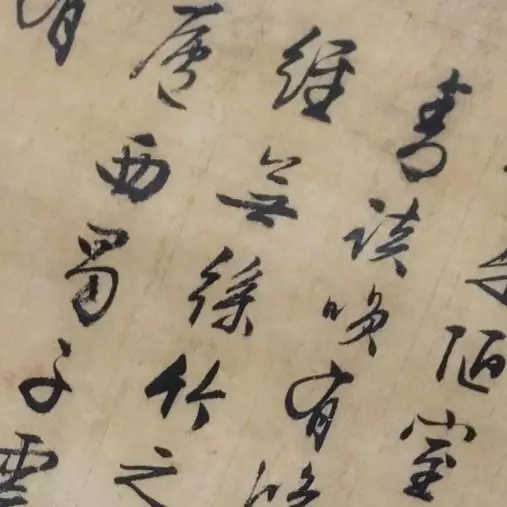 陋室
青談咲有
經無絲竹之
廬西蜀子雲
有